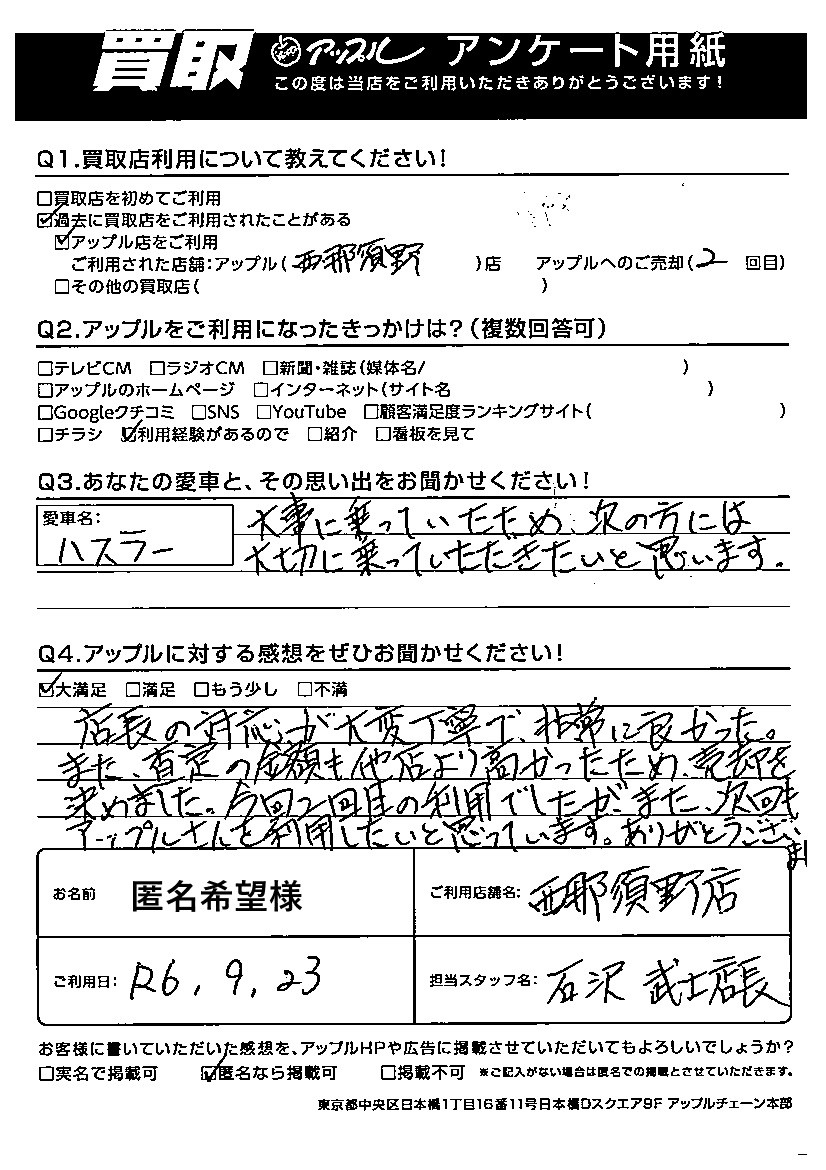 買取 アップル アンケート用紙
この度は当店をご利用いただきありがとうございます！
Q1.買取店利用について教えてください！
□買取店を初めてご利用
☑過去に買取店をご利用されたことがある
☑アップル店をご利用
ご利用された店舗：アップル（ 西那須野 ）店 アップルへのご売却（ 2 回目）
□その他の買取店（ ）
Q2.アップルをご利用になったきっかけは？（複数回答可）
□テレビCM □ラジオCM □新聞・雑誌（媒体名/ ）
□アップルのホームページ □インターネット（サイト名 ）
□Googleクチコミ □SNS □YouTube □顧客満足度ランキングサイト（ ）
□チラシ ☑利用経験があるので □紹介 □看板を見て
Q3.あなたの愛車と、その思い出をお聞かせください！
愛車名：
ハスラー
大事に乗っていたため、次の方には
大切に乗っていただきたいと思います。
Q4.アップルに対する感想をぜひお聞かせください！
☑大満足 □満足 □もう少し □不満
店長の対応が大変丁寧で、非常に良かった。
また、査定の金額も他店より高かったため、売却を
決めました。今回2回目の利用でしたが、また、次回も
アップルさんを利用したいと思っています。ありがとうござい
ま
お名前 匿名希望様 ご利用店舗名： 西那須野店
ご利用日： R6, 9, 23 担当スタッフ名： 石沢 武士店長
お客様に書いていただいた感想を、アップルHPや広告に掲載させていただいてもよろしいでしょうか？
□実名で掲載可 ☑匿名なら掲載可 □掲載不可 ※ご記入がない場合は匿名での掲載とさせていただきます。
東京都中央区日本橋1丁目16番11号日本橋Dスクエア9F アップルチェーン本部